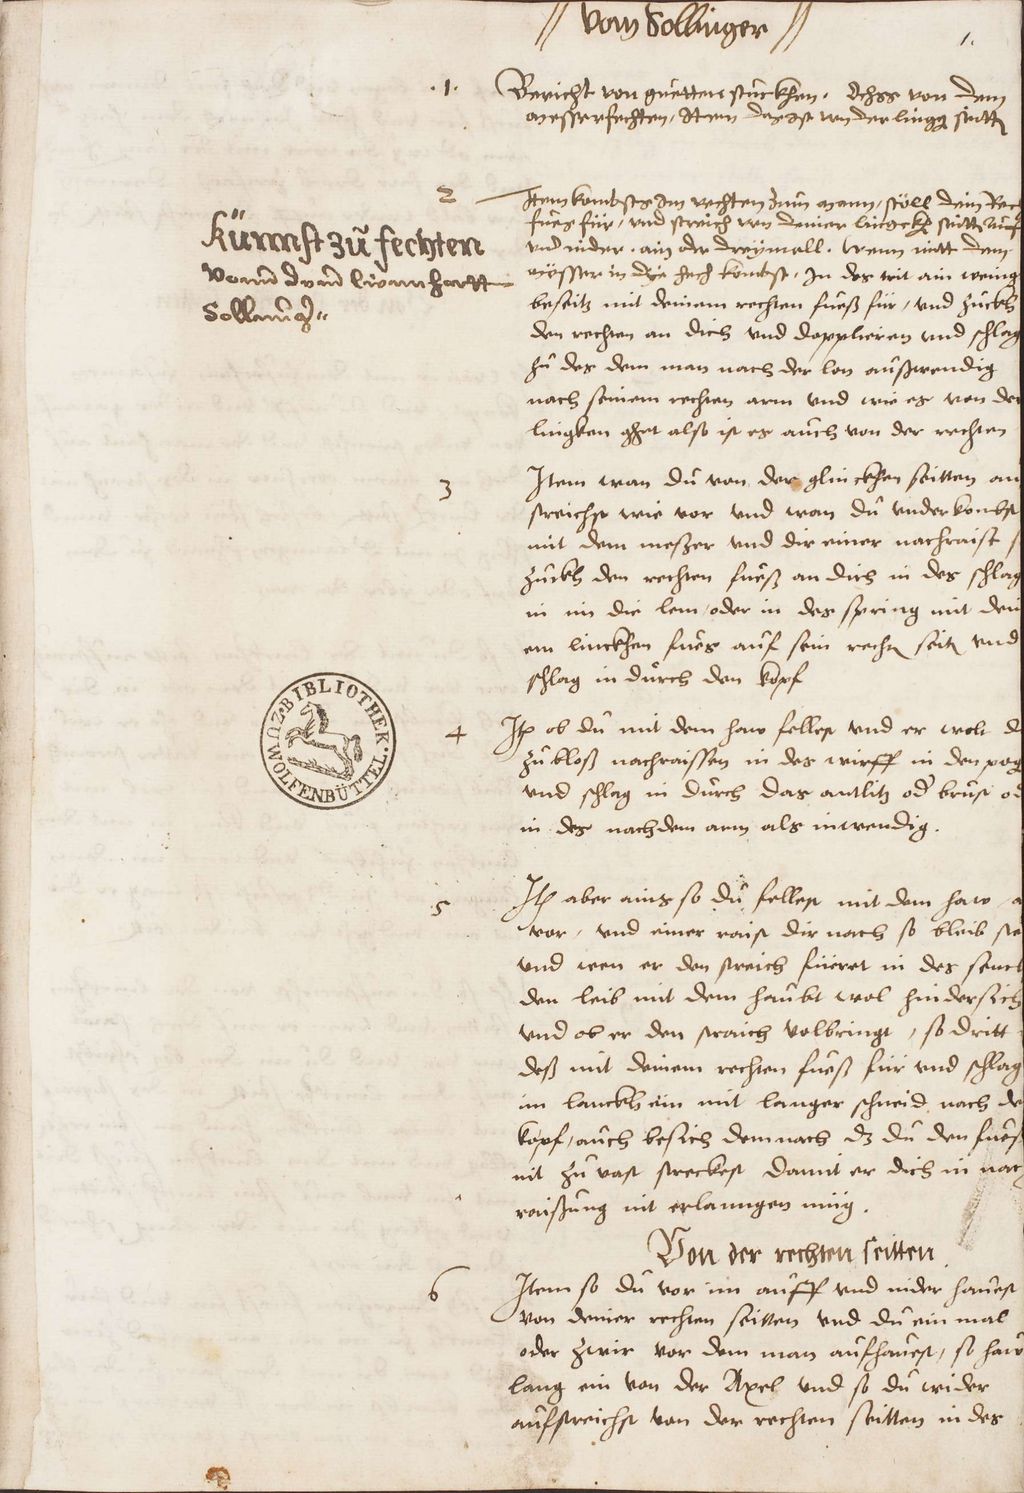 // vom Sollinger //
1.
.1. Bericht von guetten stuckhen. Ihss von dem
messerfechten, Item das ist von der lingg seitt
2 Item kombstu Im rechten Zum mann, stöll dein Rec
fues für, vnd streich von deiner linckh seitt auf
vnd nider, ain oder dreymall. Wenn mitt dem
messer in die hech kombst, In des trit ain wenig
beseitz mit deinem rechten fueß für, vnd zuckh
den rechten an dich vnd dopplieren vnd schlag
zu des dem man nach der lon außwendig
nach seinem rechten arm vnd wie es von der
lingken ghet also ist es auch von der rechten
Künnst zu fechten
vonn dem lionnhartt
Sollinng..
3 Item wan du von der glinckhen seitten au
streichst wie vor vnd wan du vnder kombst
mit dem meszer vnd dir einer nachraist s
zuckh den rechten fueß an dich in des schlag
in im die lem, oder in des spring mit dein
em linckhen fues auf sein recht seit vnd
schlag in durch den kopf
4 Itp ob du mit dem haw fellest vnd er wolt d
zu bloß nachraissen in des wirff in den pog
vnd schlag in durch das antlitz od brust od
in des nach dem arm als inwendig.
BIBLIOTHEK ZU WOLFENBÜTTEL
5 Itp aber ains so du fellest mit dem haw, a
vor, vnd einer raist dir nach so bleib ste
vnd wen er den streich füeret in des senck
den leib mit dem haubt wol hindersich
vnd ob er den straich volbringt, so dritt
deß mit deinem rechten fueß für vnd schlag
im lanckh ein mit langer schneid nach de
kopf, auch besich dem nach dz du den fues
nit zu vast streckest damit er dich in nach
raißung nit erlanngen müg.
Von der rechten seitten
6 Item so du vor im auff vnd nider hauest
von deiner rechten seitten vnd du ein mal
oder zwir vor dem man aufhauest, so haw
lang ein von der Axel vnd so du wider
aufstreichst von der rechten seitten in des